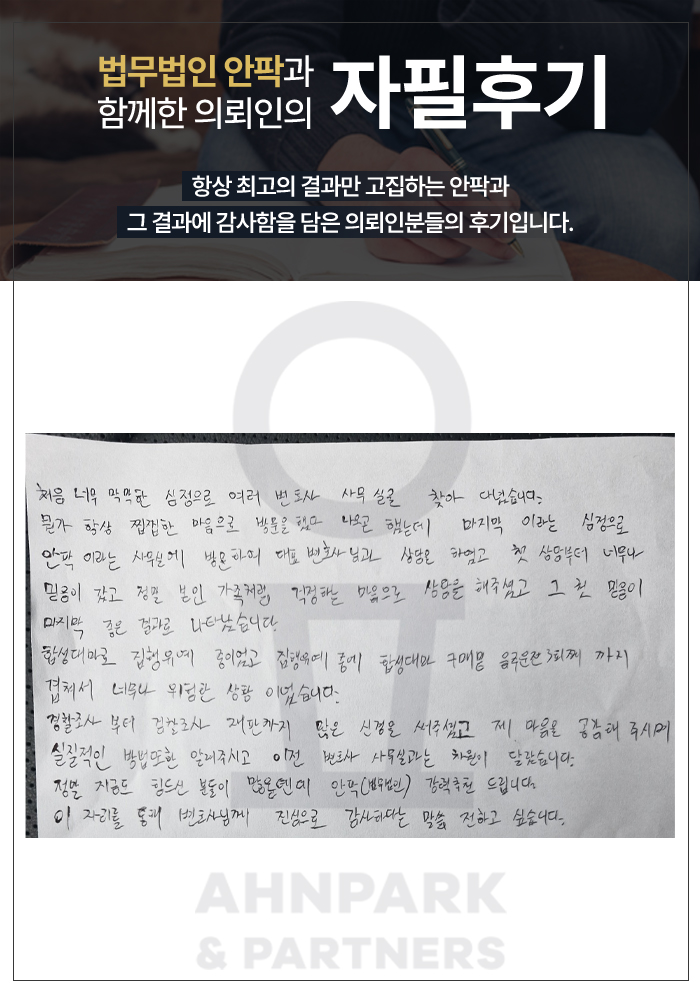 법무법인 안팍과
함께한 의뢰인의
자필후기
항상 최고의 결과만 고집하는 안팍과
그 결과에 감사함을 담은 의뢰인분들의 후기입니다.
처음 너무 막막한 심정으로 여러 변호사 사무실을 찾아 다녔습니다.
뭔가 항상 찝찝한 마음으로 방문을 했다 나오곤 했는데 마지막 이라는 심정으로
안팍 이라는 사무실에 방문하여 대표 변호사님과 상담을 하였고 첫 상담부터 너무나
믿음이 갔고 정말 본인 가족처럼 걱정하는 마음으로 상담을 해주셨고 그 첫 믿음이
마지막 좋은 결과로 나타났습니다.
합성대마로 집행유예 중이었고 집행유예 중에 합성대마 구매및 음주운전 3회째 까지
겹쳐서 너무나 위험한 상황 이었습니다.
경찰조사 부터 검찰조사 재판까지 많은 신경을 써주셨고 제 마음을 공감해 주시며
실질적인 방법또한 알려주시고 이전 변호사 사무실과는 차원이 달랐습니다.
정말 지금도 힘드신 분들이 많을텐데 안팍(법무법인) 강력추천 드립니다.
이 자리를 통해 변호사님께 진심으로 감사하다는 말씀 전하고 싶습니다.
AHNPARK
& PARTNERS